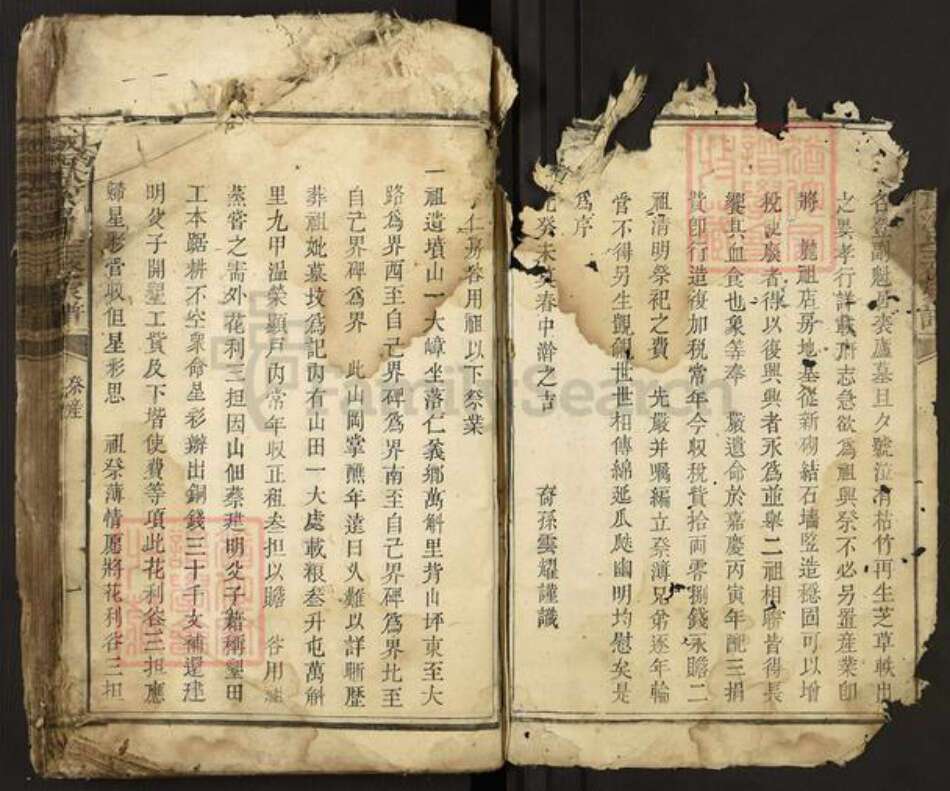 名登副魁再袠廬墓旦夕號泣有枯竹再生芝草軼出
之異孝行詳載府志急欲為祖興祭不必另置產業卽
將 毓祖店房地基從新砌結石墻豎造穩固可以增
稅祀嚴者得以復興興者永為並舉二祖相聯皆得長
饗其血食也衆等奉 嚴遺命於嘉慶丙寅年配三捐
貲卽行造復加稅常年今収稅貲拾両零捌錢永贍二
祖清明祭祀之費 先嚴并嘱編立祭簿兄弟逐年輪
管不得另生覬覦世世相傳綿延瓜瓞幽明均慰矣是
為序
癸未孟春中澣之吉 裔孫雲耀謹識
仁房容用祖以下祭業
一祖遺墳山一大嶂坐落仁義鄉萬斛里背山坪東至大
路為界西至自己界碑為界南至自己界碑為界北至
自己界碑為界 此山岡掌醮年遠日久難以詳晰歷
葬祖妣墓墳為記內有山田一大處載粮叁升屯萬斛
里九甲溫榮顯戶內常年収正租叁担以贍 容用祖
蒸嘗之需外花利三担因山佃蔡建明父子藉稱墾田
工本踞耕不空衆命星彩辦出銅錢三十千文補還建
明父子開墾工貲及下堦使費等項此花利谷三担應
歸星彩管収但星彩思 祖祭薄情愿將花利谷三担
祭產
一